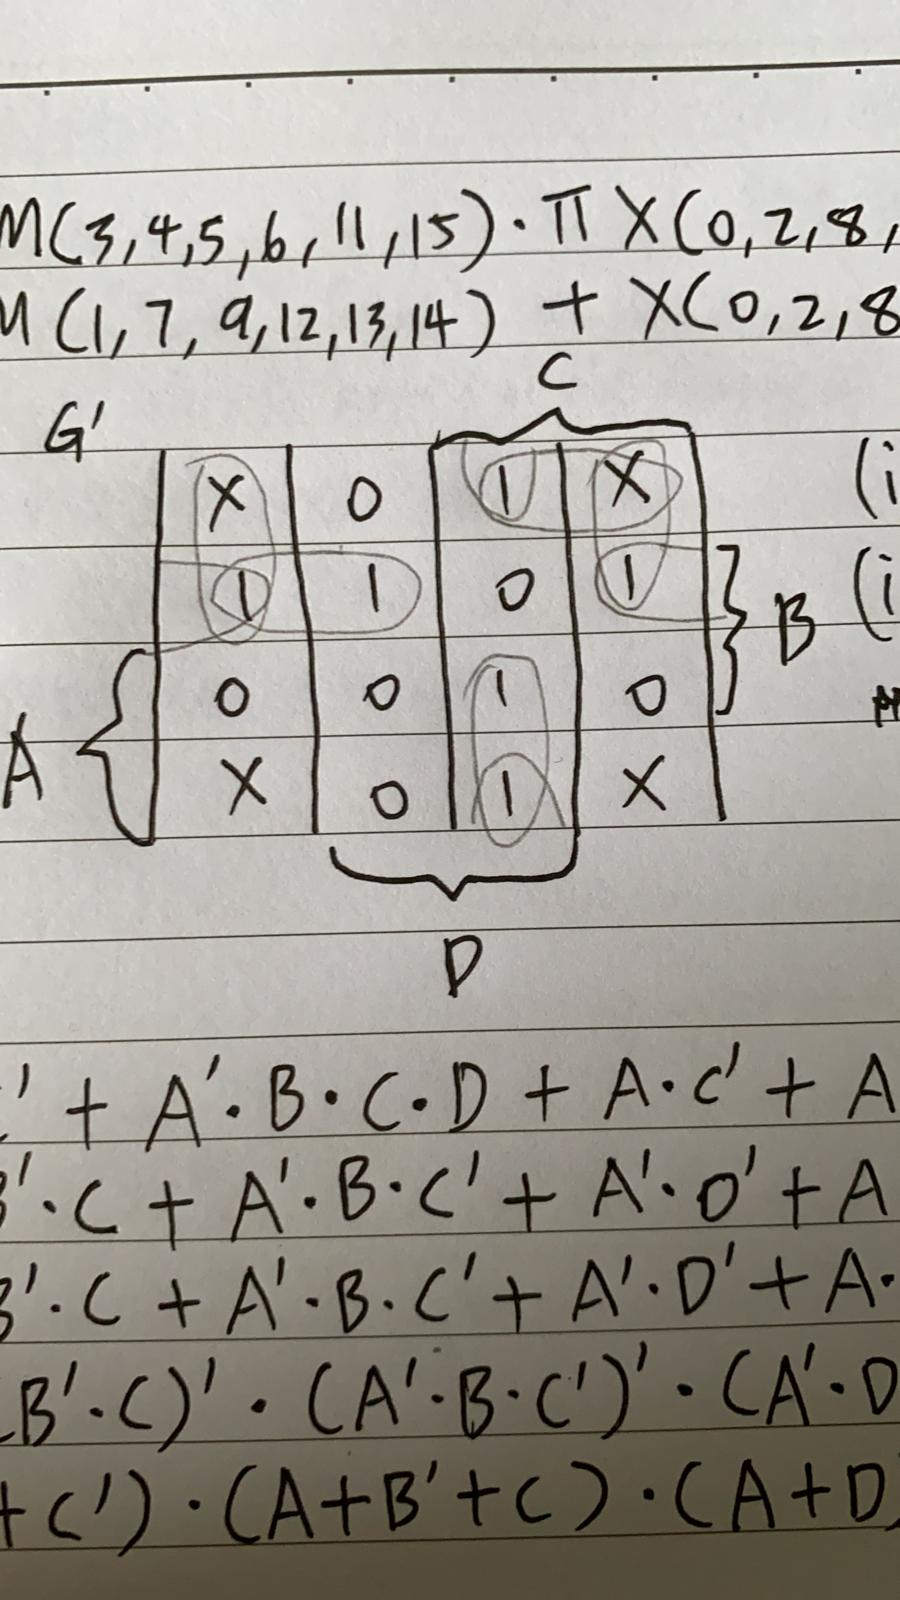 M(3,4,5,6,11,15)·Π X(0,2,8,
M(1,7,9,12,13,14) + X(0,2,8
C
G'
X 0 1 X (i
1 1 0 1 B (i
0 0 1 0
A X 0 1 X
D
' + A'·B·C·D + A·C' + A
B'·C + A'·B·C' + A'·D' + A
B'·C + A'·B·C' + A'·D' + A·
B'·C)'·(A'·B·C')'·(A'·D
+C')·(A+B'+C)·(A+D